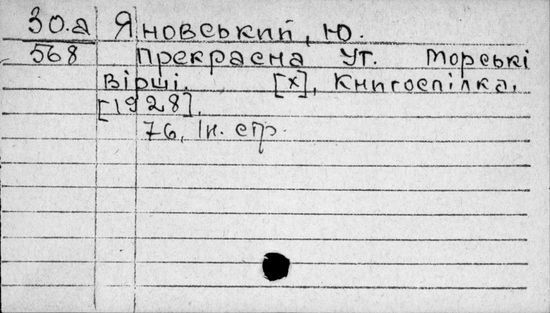 30.а Яновський, Ю.
568 Прекрасна УТ. Морські
вірші. [х], Книгоспілка,
[1928].
76, Iн. стр.